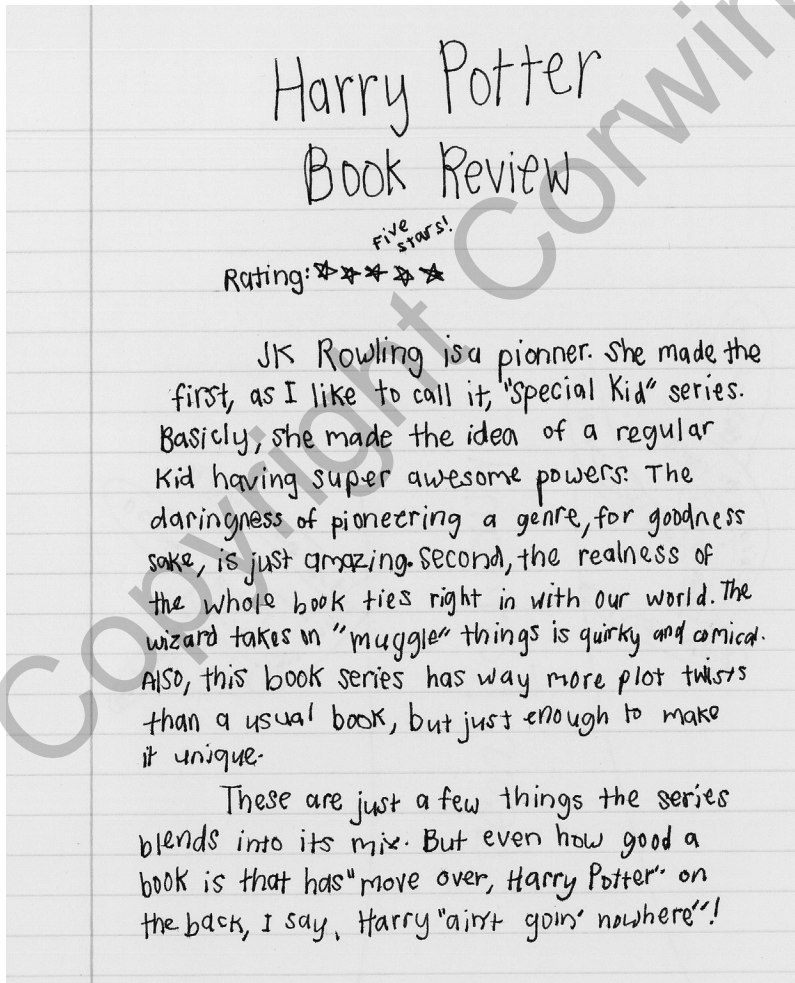 Harry Potter
Book Review
Five
stars!
Rating: ☆☆☆☆☆
JK Rowling is a pionner. She made the
first, as I like to call it, "Special Kid" series.
Basicly, she made the idea of a regular
Kid having super awesome powers. The
daringness of pioneering a genre, for goodness
sake, is just amazing. Second, the realness of
the whole book ties right in with our world. The
wizard takes on "muggle" things is quirky and comical.
Also, this book series has way more plot twists
than a usual book, but just enough to make
it unique.
These are just a few things the series
blends into its mix. But even how good a
book is that has "move over, Harry Potter" on
the back, I say, Harry "ain't goin' nowhere"!
Copyright Corwin